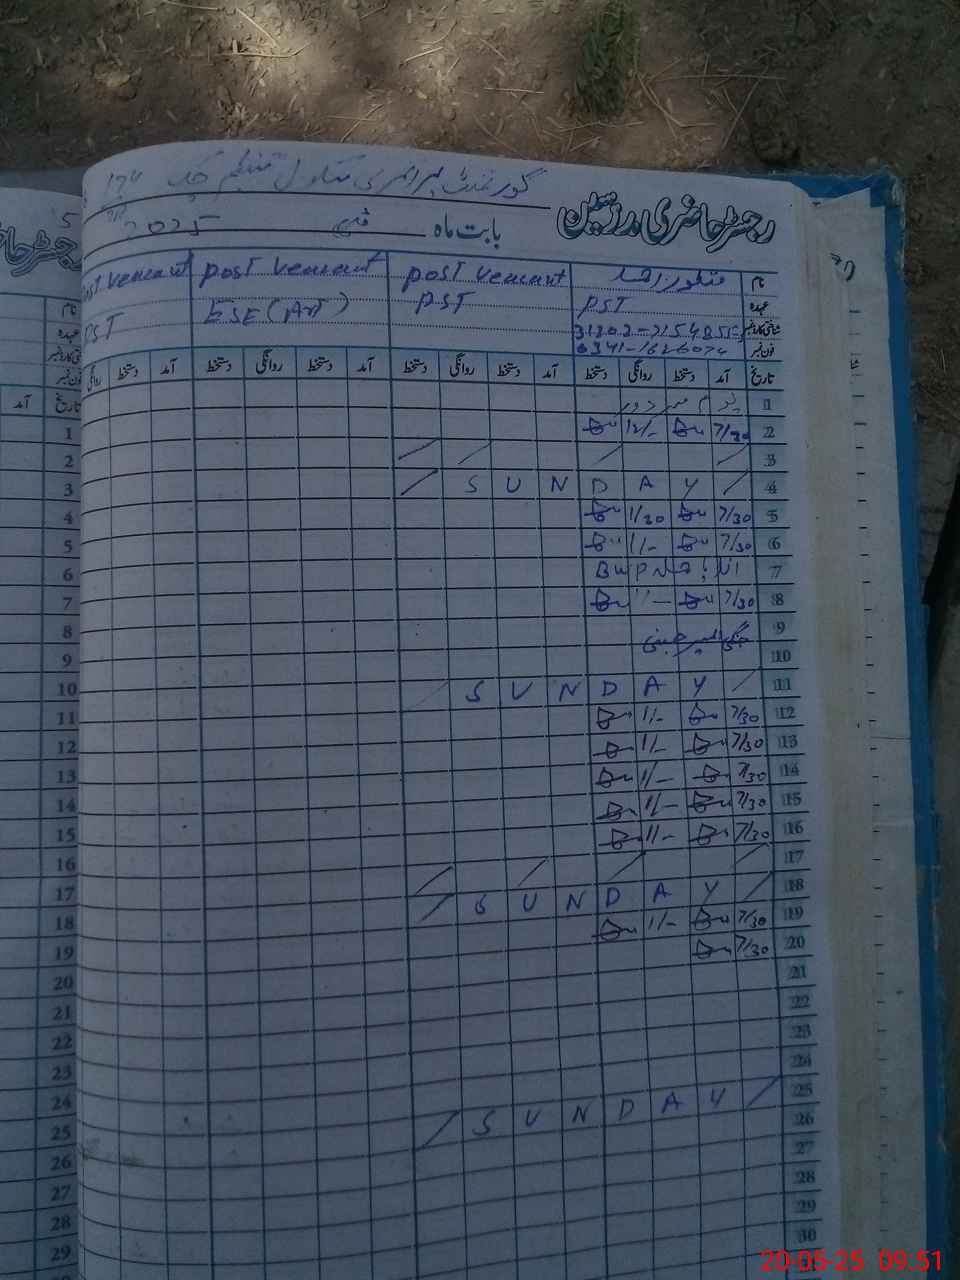 رجسٹر حاضری مدرسین گورنمنٹ پرائمری سکول
بابت ماہ مئی 2025
نام post vecant post vecant post vecant
عہدہ PST PST ESE (Art) PST
شناختی کارڈ نمبر
فون نمبر 0341-1626074
تاریخ آمد دستخط روانگی دستخط آمد دستخط روانگی دستخط آمد دستخط روانگی دستخط آمد دستخط روانگی
1 یوم مزدور
2 7/30 12/-
3
4 S U N D A Y
5 7/30 1/30
6 7/30 1/-
7
8 7/30 1/-
9
10
11 S U N D A Y
12 7/30 1/-
13 7/30 1/-
14 7/30 1/-
15 7/30 1/-
16 7/30 1/-
17
18 S U N D A Y
19 7/30 1/-
20 7/30
21
22
23
24
25 S U N D A Y
26
27
28
29
30
5
رجسٹر حا
نام
عہدہ
فون نمبر
تاریخ آمد
1
2
3
4
5
6
7
8
9
10
11
12
13
14
15
16
17
18
19
20
21
22
23
24
25
26
27
28
29
20-05-25 09:51